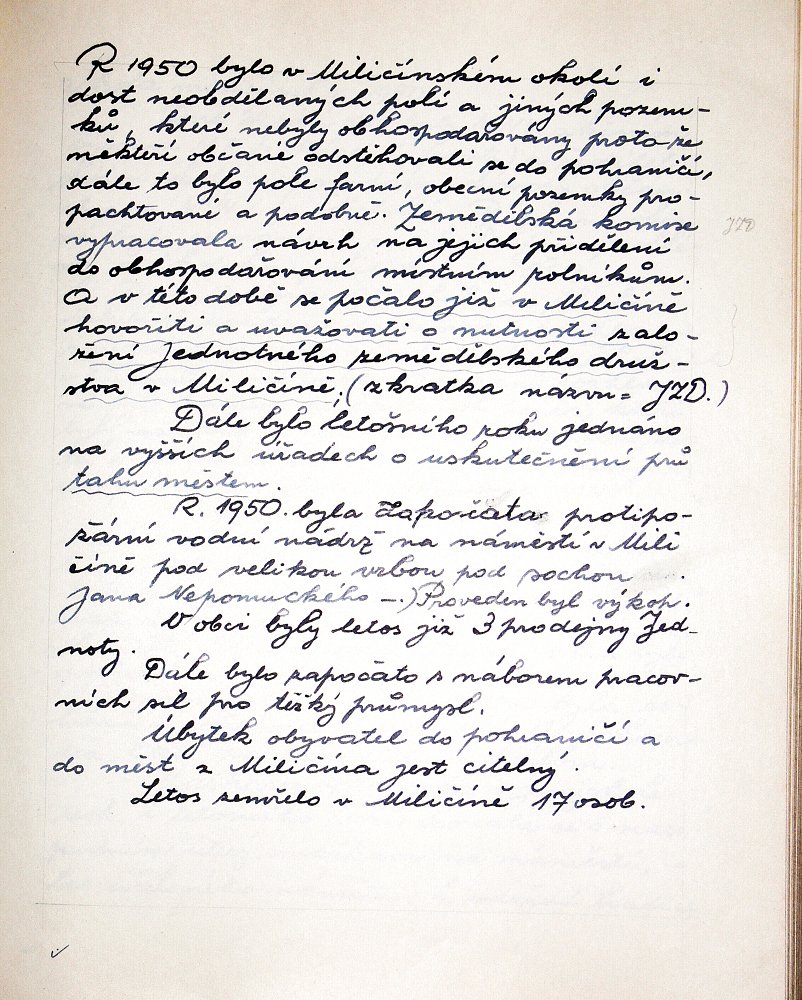 R 1950 bylo v Miličínském okolí i
dost neobdělaných polí a jiných pozem-
ků, které nebyly obhospodařovány proto že
někteří občané odstěhovali se do pohraničí,
dále to bylo pole farní, obecní pozemky pro-
pachtované a podobně. Zemědělská komise
JZD
vypracovala návrh na jejich přidělení
do obhospodařování místním rolníkům.
A v této době se počalo již v Miličíně
hovořiti a uvažovati o nutnosti zalo-
žení Jednotného zemědělského druž-
stva v Miličíně, (zkratka názvu = JZD.)
Dále bylo letošního roku jednáno
na vyšších úřadech o uskutečnění prů
tahu městem.
R. 1950. byla započata protipo-
žární vodní nádrž na náměstí v Mili
číně pod velikou vrbou pod sochou
Jana Nepomuckého -.) Proveden byl výkop.
V obci byly letos již 3 prodejny Jed-
noty.
Dále bylo započato s náborem pracov-
ních sil pro těžký průmysl.
Úbytek obyvatel do pohraničí a
do měst z Miličína jest citelný.
Letos zemřelo v Miličíně 17 osob.